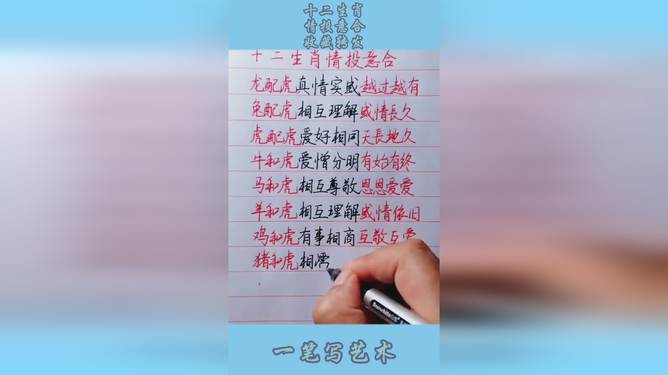 十二生肖
情投意合
收藏转发
十二生肖情投意合
龙配虎真情实感越过越有
兔配虎相互理解感情長久
虎配虎爱好相同天長地久
牛和虎爱憎分明有始有终
马和虎相互尊敬恩恩爱爱
羊和虎相互理解感情依旧
鸡和虎有事相商互敬互爱
猪和虎相
一笔写艺术